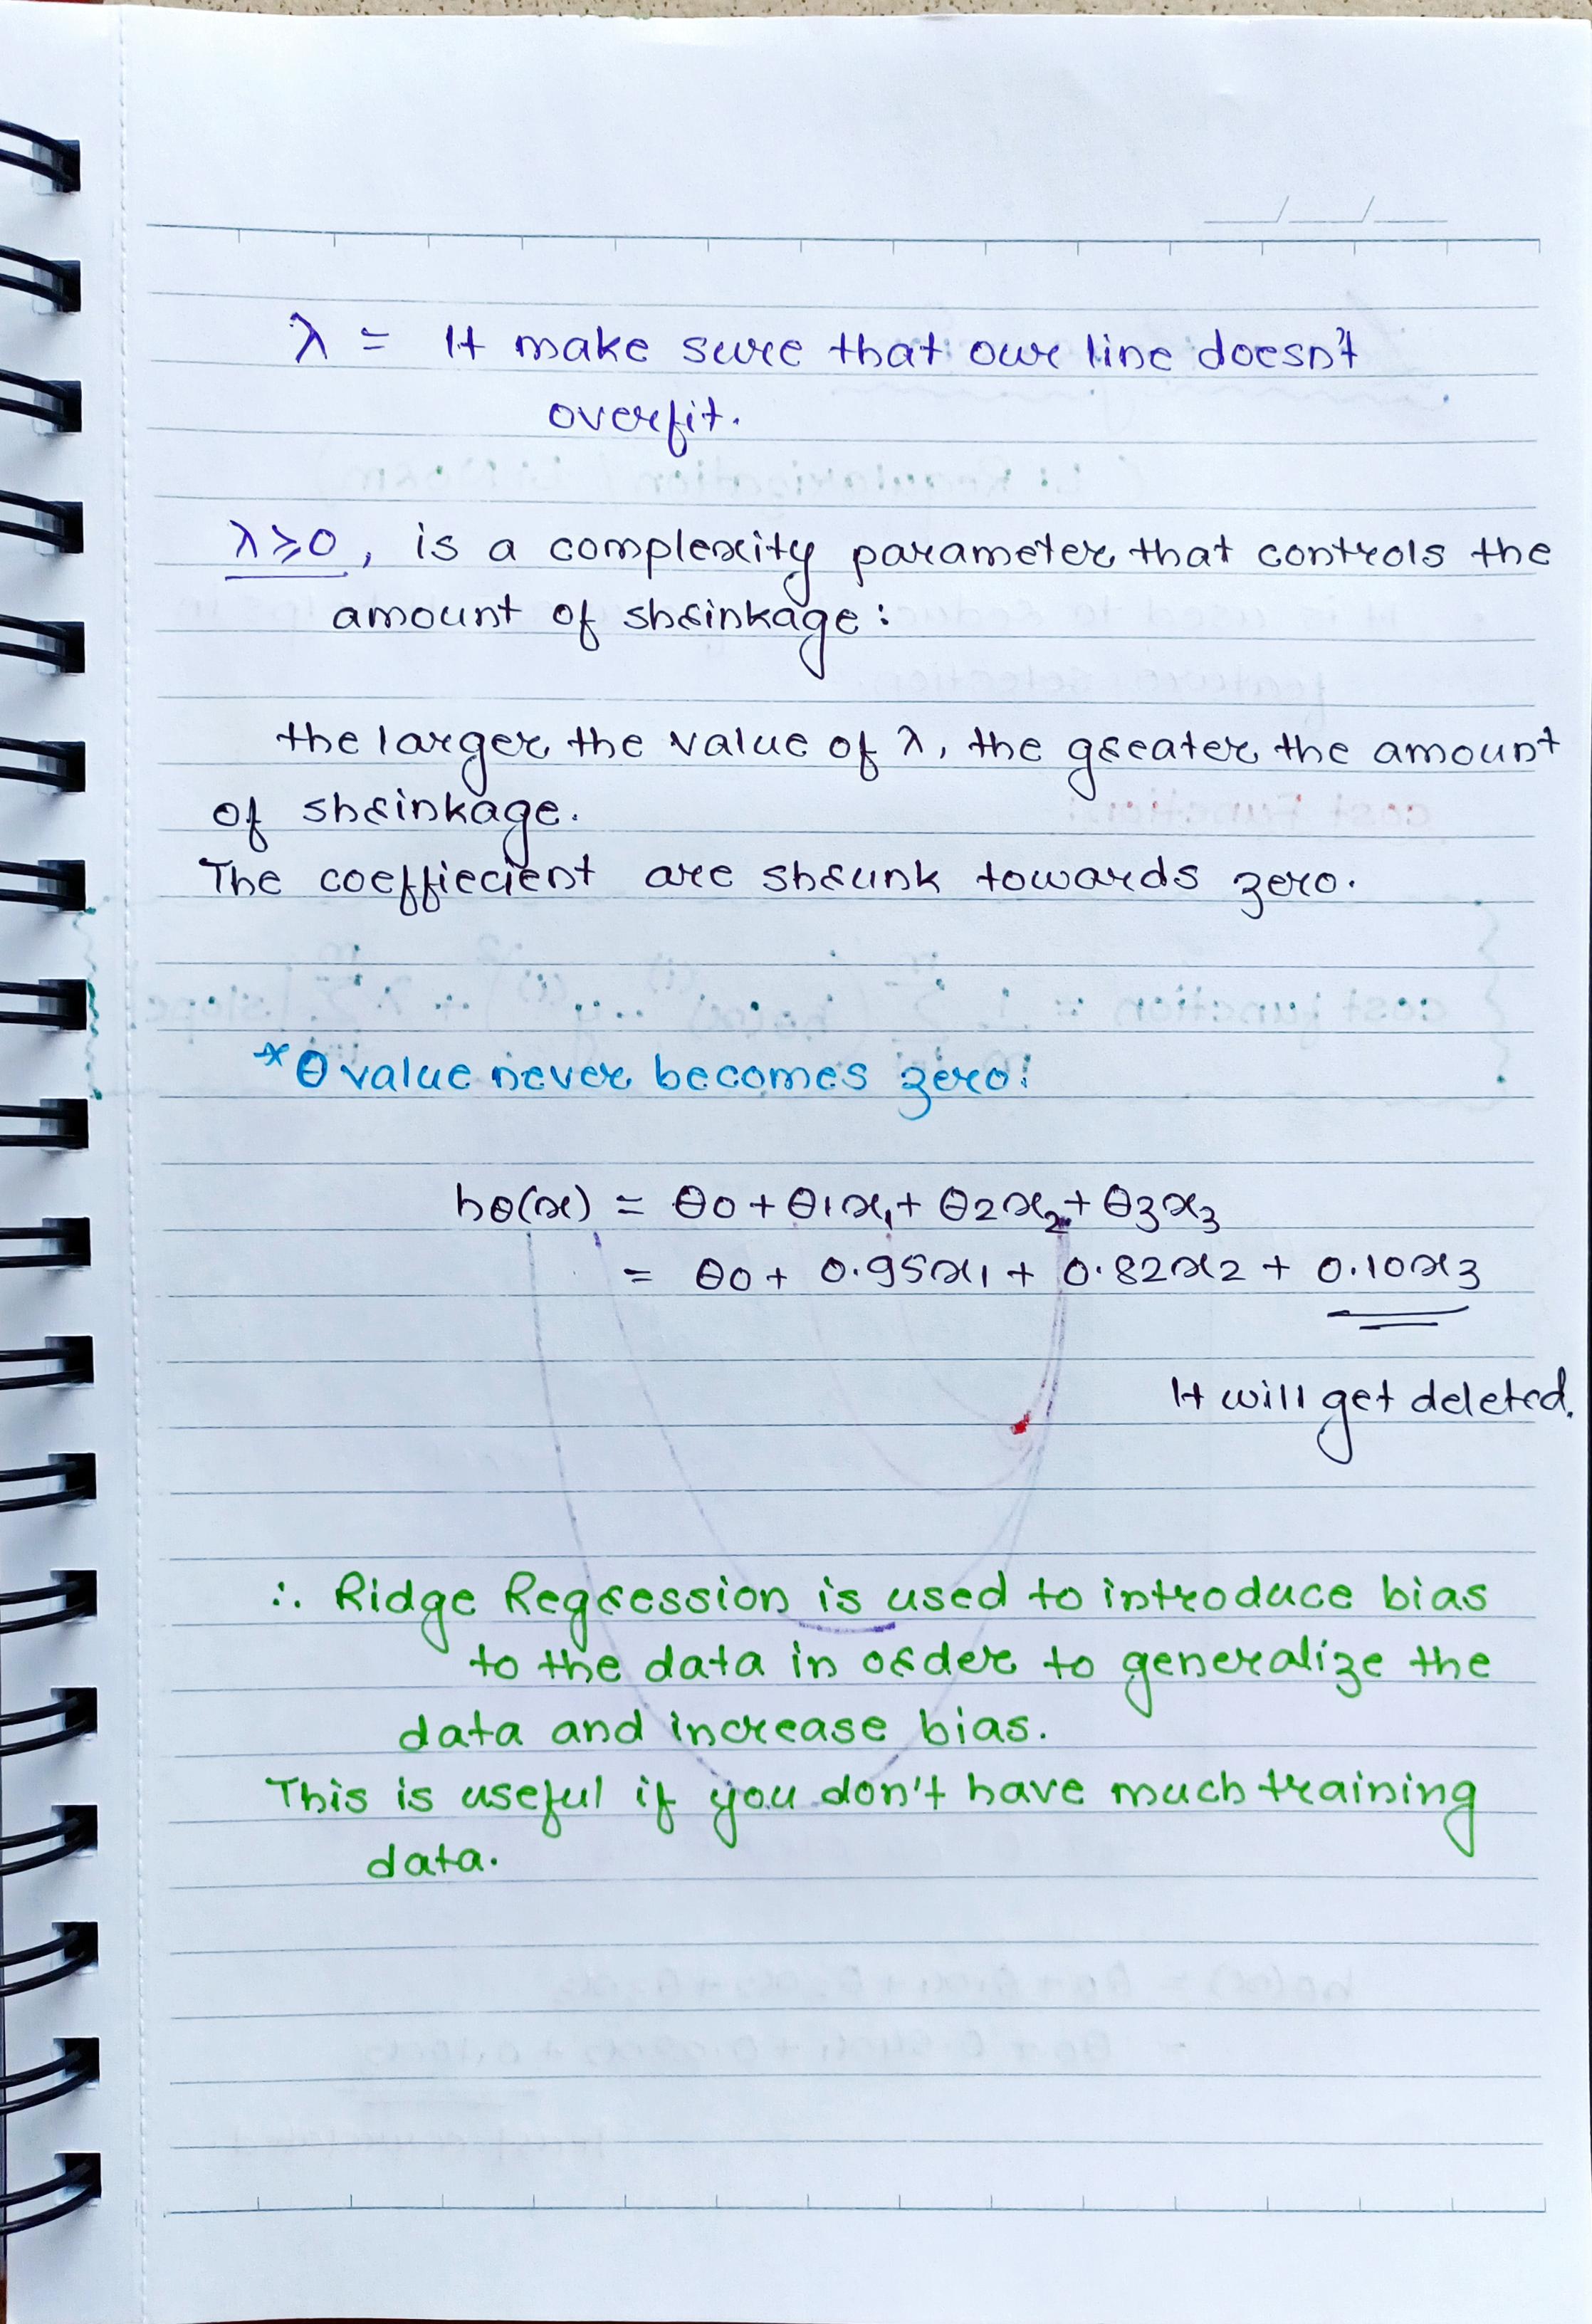 λ = It make sure that our line doesn't
overfit.
λ ≥ 0, is a complexity parameter that controls the
amount of shrinkage:
the larger the value of λ, the greater the amount
of shrinkage.
The coeffiecient are shrunk towards zero.
*θ value never becomes zero:
hθ(x) = θ0 + θ1x1 + θ2x2 + θ3x3
= θ0 + 0.95x1 + 0.82x2 + 0.10x3
It will get deleted.
∴ Ridge Regression is used to introduce bias
to the data in order to generalize the
data and increase bias.
This is useful if you don't have much training
data.